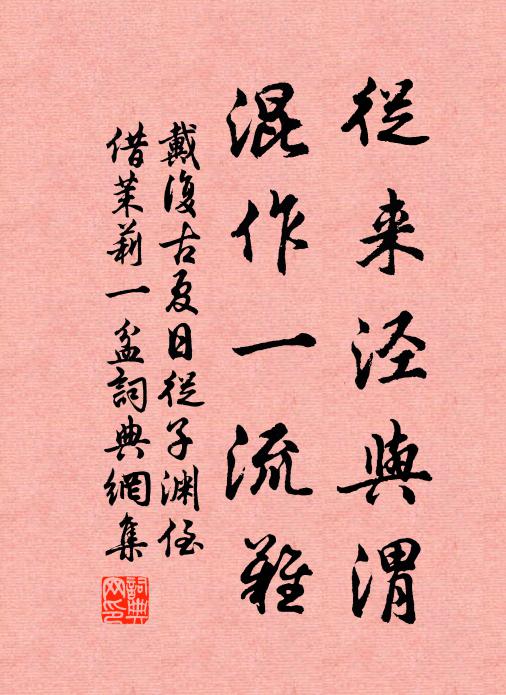 從来涇與渭
混作一流難
戴復古夏日從子淵侄
借茉莉一盆詞典網集
詞典網印